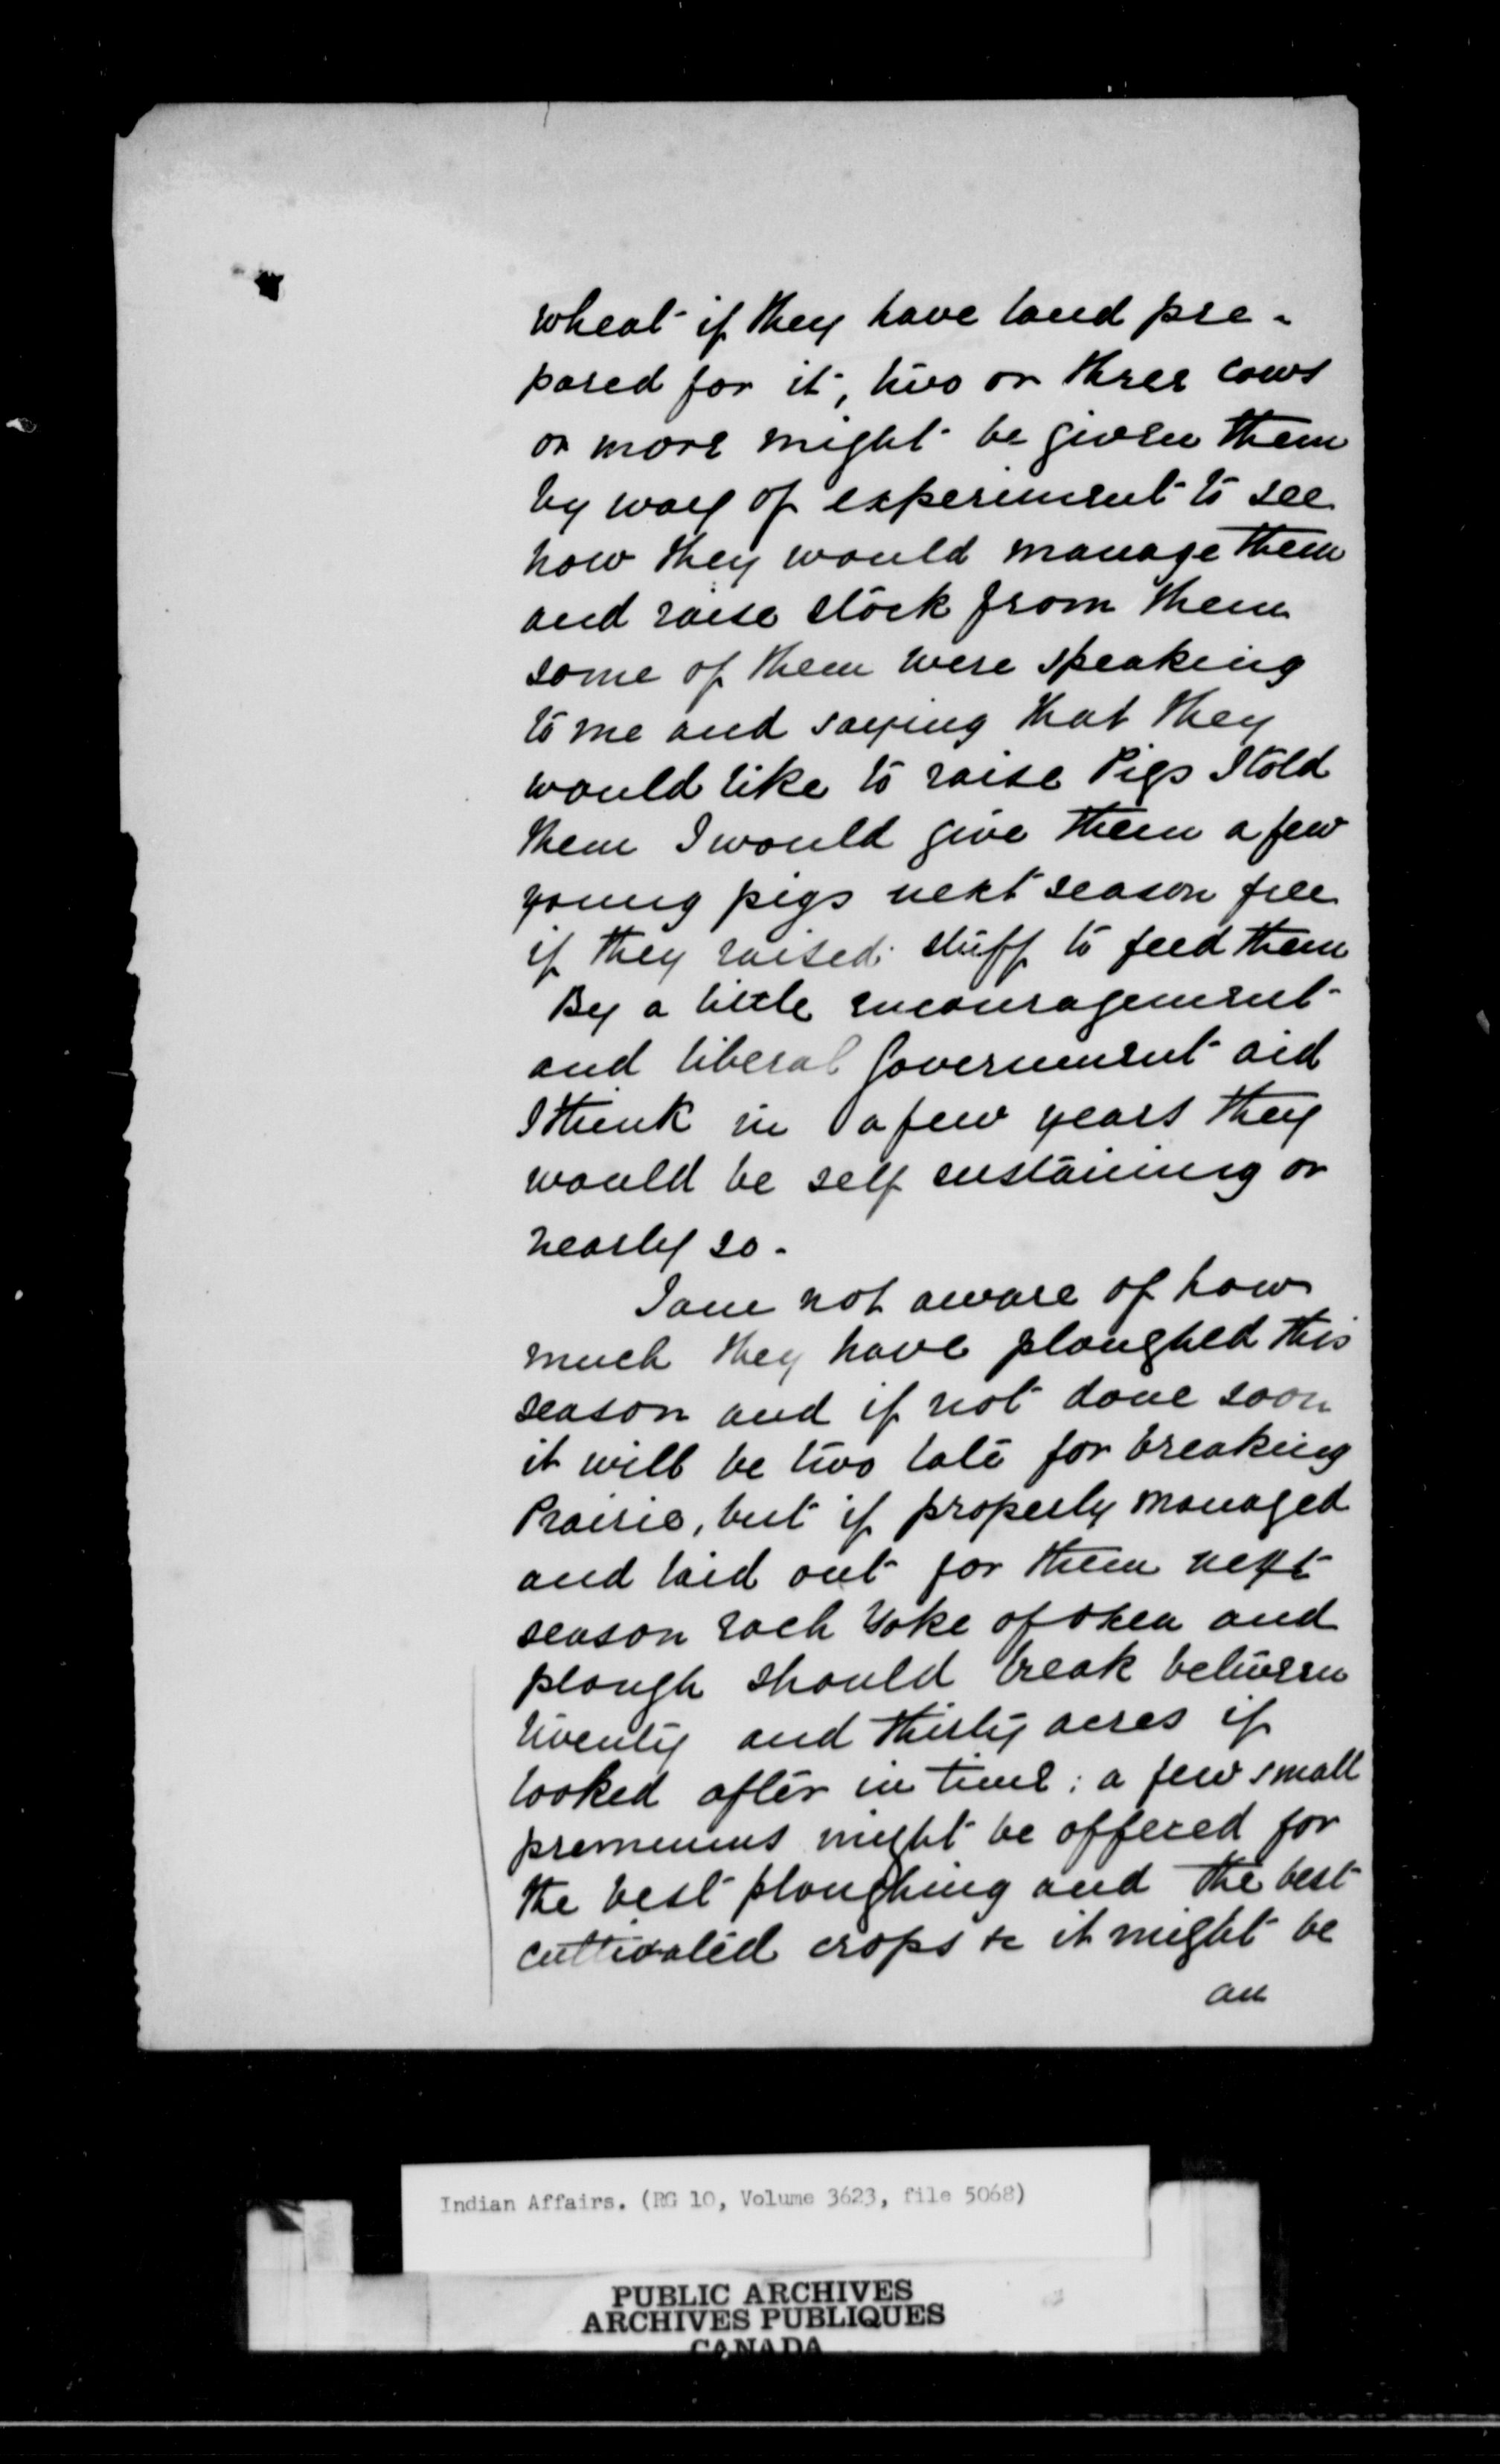 wheat if they have land pre-
pared for it, two or three cows
or more might be given them
by way of experiment to see
how they would manage them
and raise stock from them
some of them were speaking
to me and saying that they
would like to raise Pigs I told
them I would give them a few
young pigs next season free
if they raised stuff to feed them
By a little encouragement
and liberal Government aid
I think in a few years they
would be self sustaining or
nearly so-
I am not aware of how
much they have ploughed this
season and if not done soon
it will be two late for breaking
Prairie, but if properly managed
and laid out for them next
season each Yoke of oxen and
plough should break between
twenty and thirty acres if
looked after in time; a few small
premiums might be offered for
the best ploughing and the best
cultivated crops &c it might be
an
Indian Affairs. (RG 10, Volume 3623, file 5068)
PUBLIC ARCHIVES
ARCHIVES PUBLIQUES
CANADA